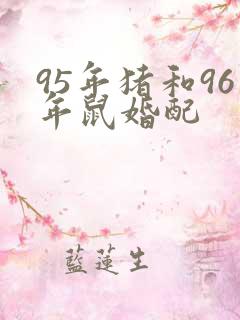 95年猪和96
年鼠婚配
藍蓮生